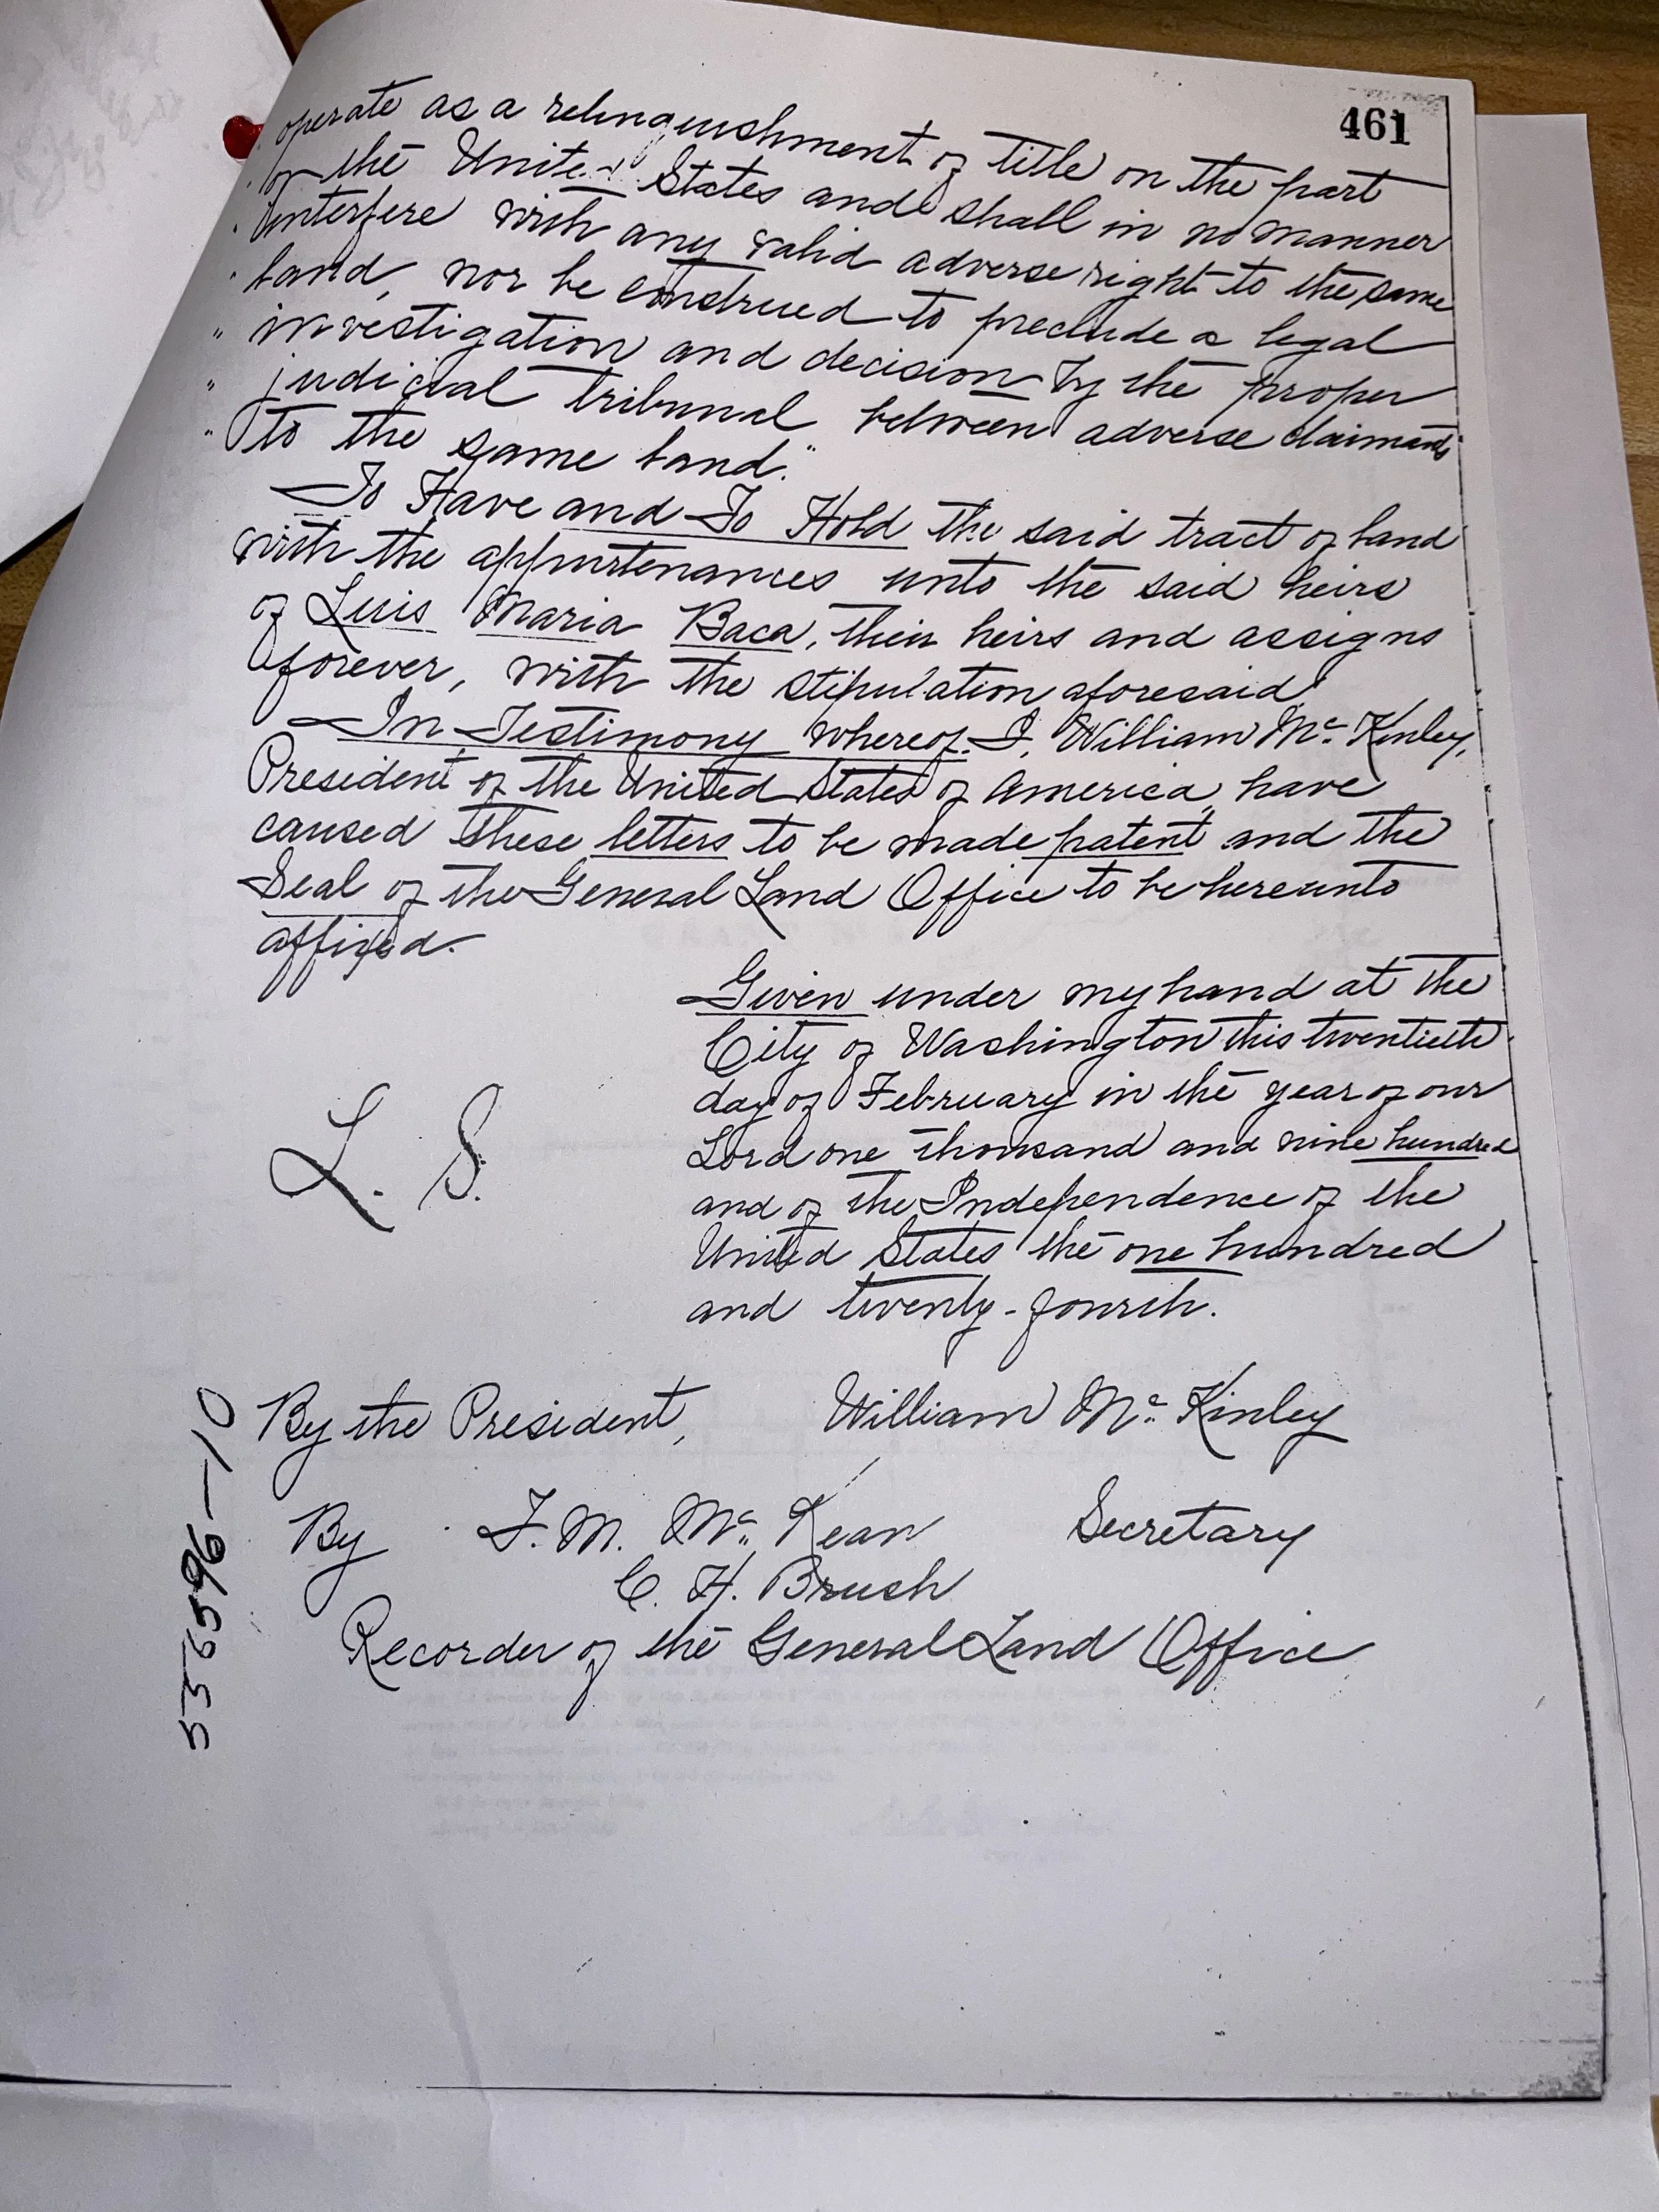 461
operate as a relinquishment of title on the part
" of the United States and shall in no manner
" interfere with any valid adverse right to the same
" land, nor be construed to preclude a legal
" investigation and decision by the proper
" judicial tribunal between adverse claimants
" to the same land."
To Have and To Hold the said tract of land
with the appurtenances unto the said heirs
of Luis Maria Baca, their heirs and assigns
forever, with the stipulation aforesaid.
In Testimony whereof I, William Mc Kinley,
President of the United States of America, have
caused these letters to be made patent and the
Seal of the General Land Office to be hereunto
affixed.
Given under my hand at the
City of Washington this twentieth
day of February in the year of our
Lord one thousand and nine hundred
and of the Independence of the
United States the one hundred
and twenty-fourth.
L. S.
By the President, William Mc Kinley
By F. M. Mc Kean Secretary
C. H. Brush
Recorder of the General Land Office
536596-10